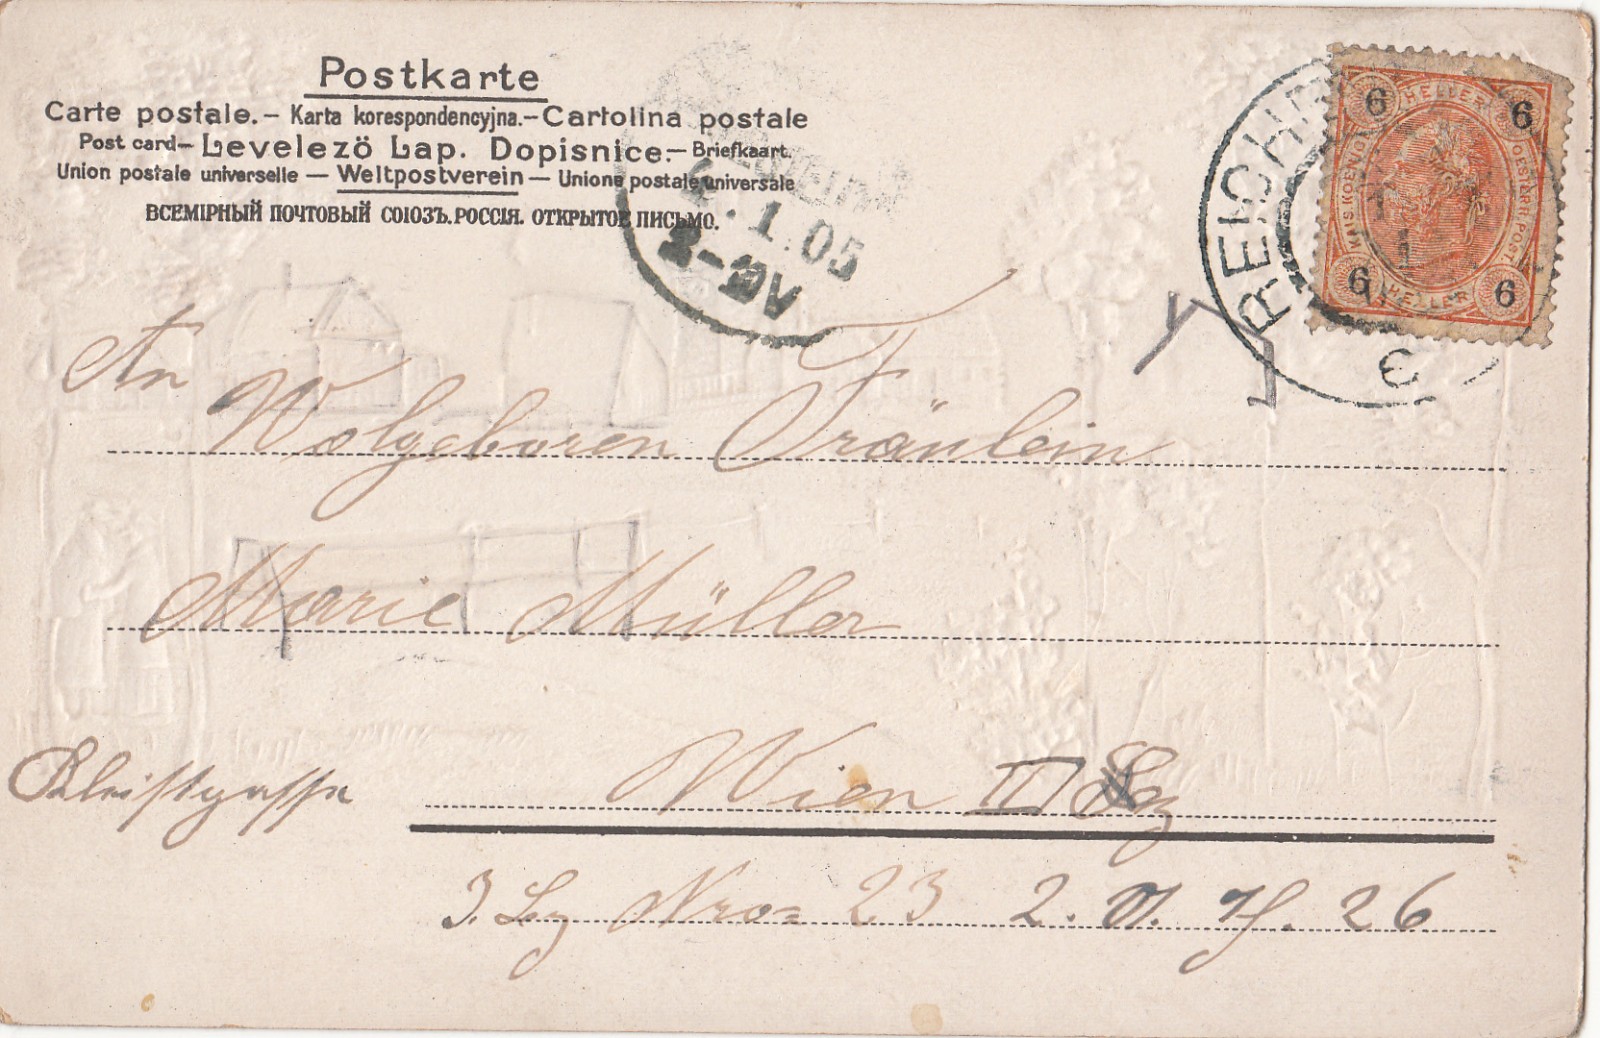 Postkarte
Carte postale.– Karta korespondencyjna.– Cartolina postale
Post card– Levelezö Lap. Dopisnice.– Briefkaart.
Union postale universelle – Weltpostverein – Unione postale universale
ВСЕМІРНЫЙ ПОЧТОВЫЙ СОЮЗЪ. РОССІЯ. ОТКРЫТОЕ ПИСЬМО.
4.1.05
REICH
6 HELLER 6
KAIS. KOENIGL. OESTERR. POST.
6 HELLER 6
An
Wolgeboren Fräulein
Marie Müller
Kleistgasse Wien III Bez
Nro= 23 2. 26